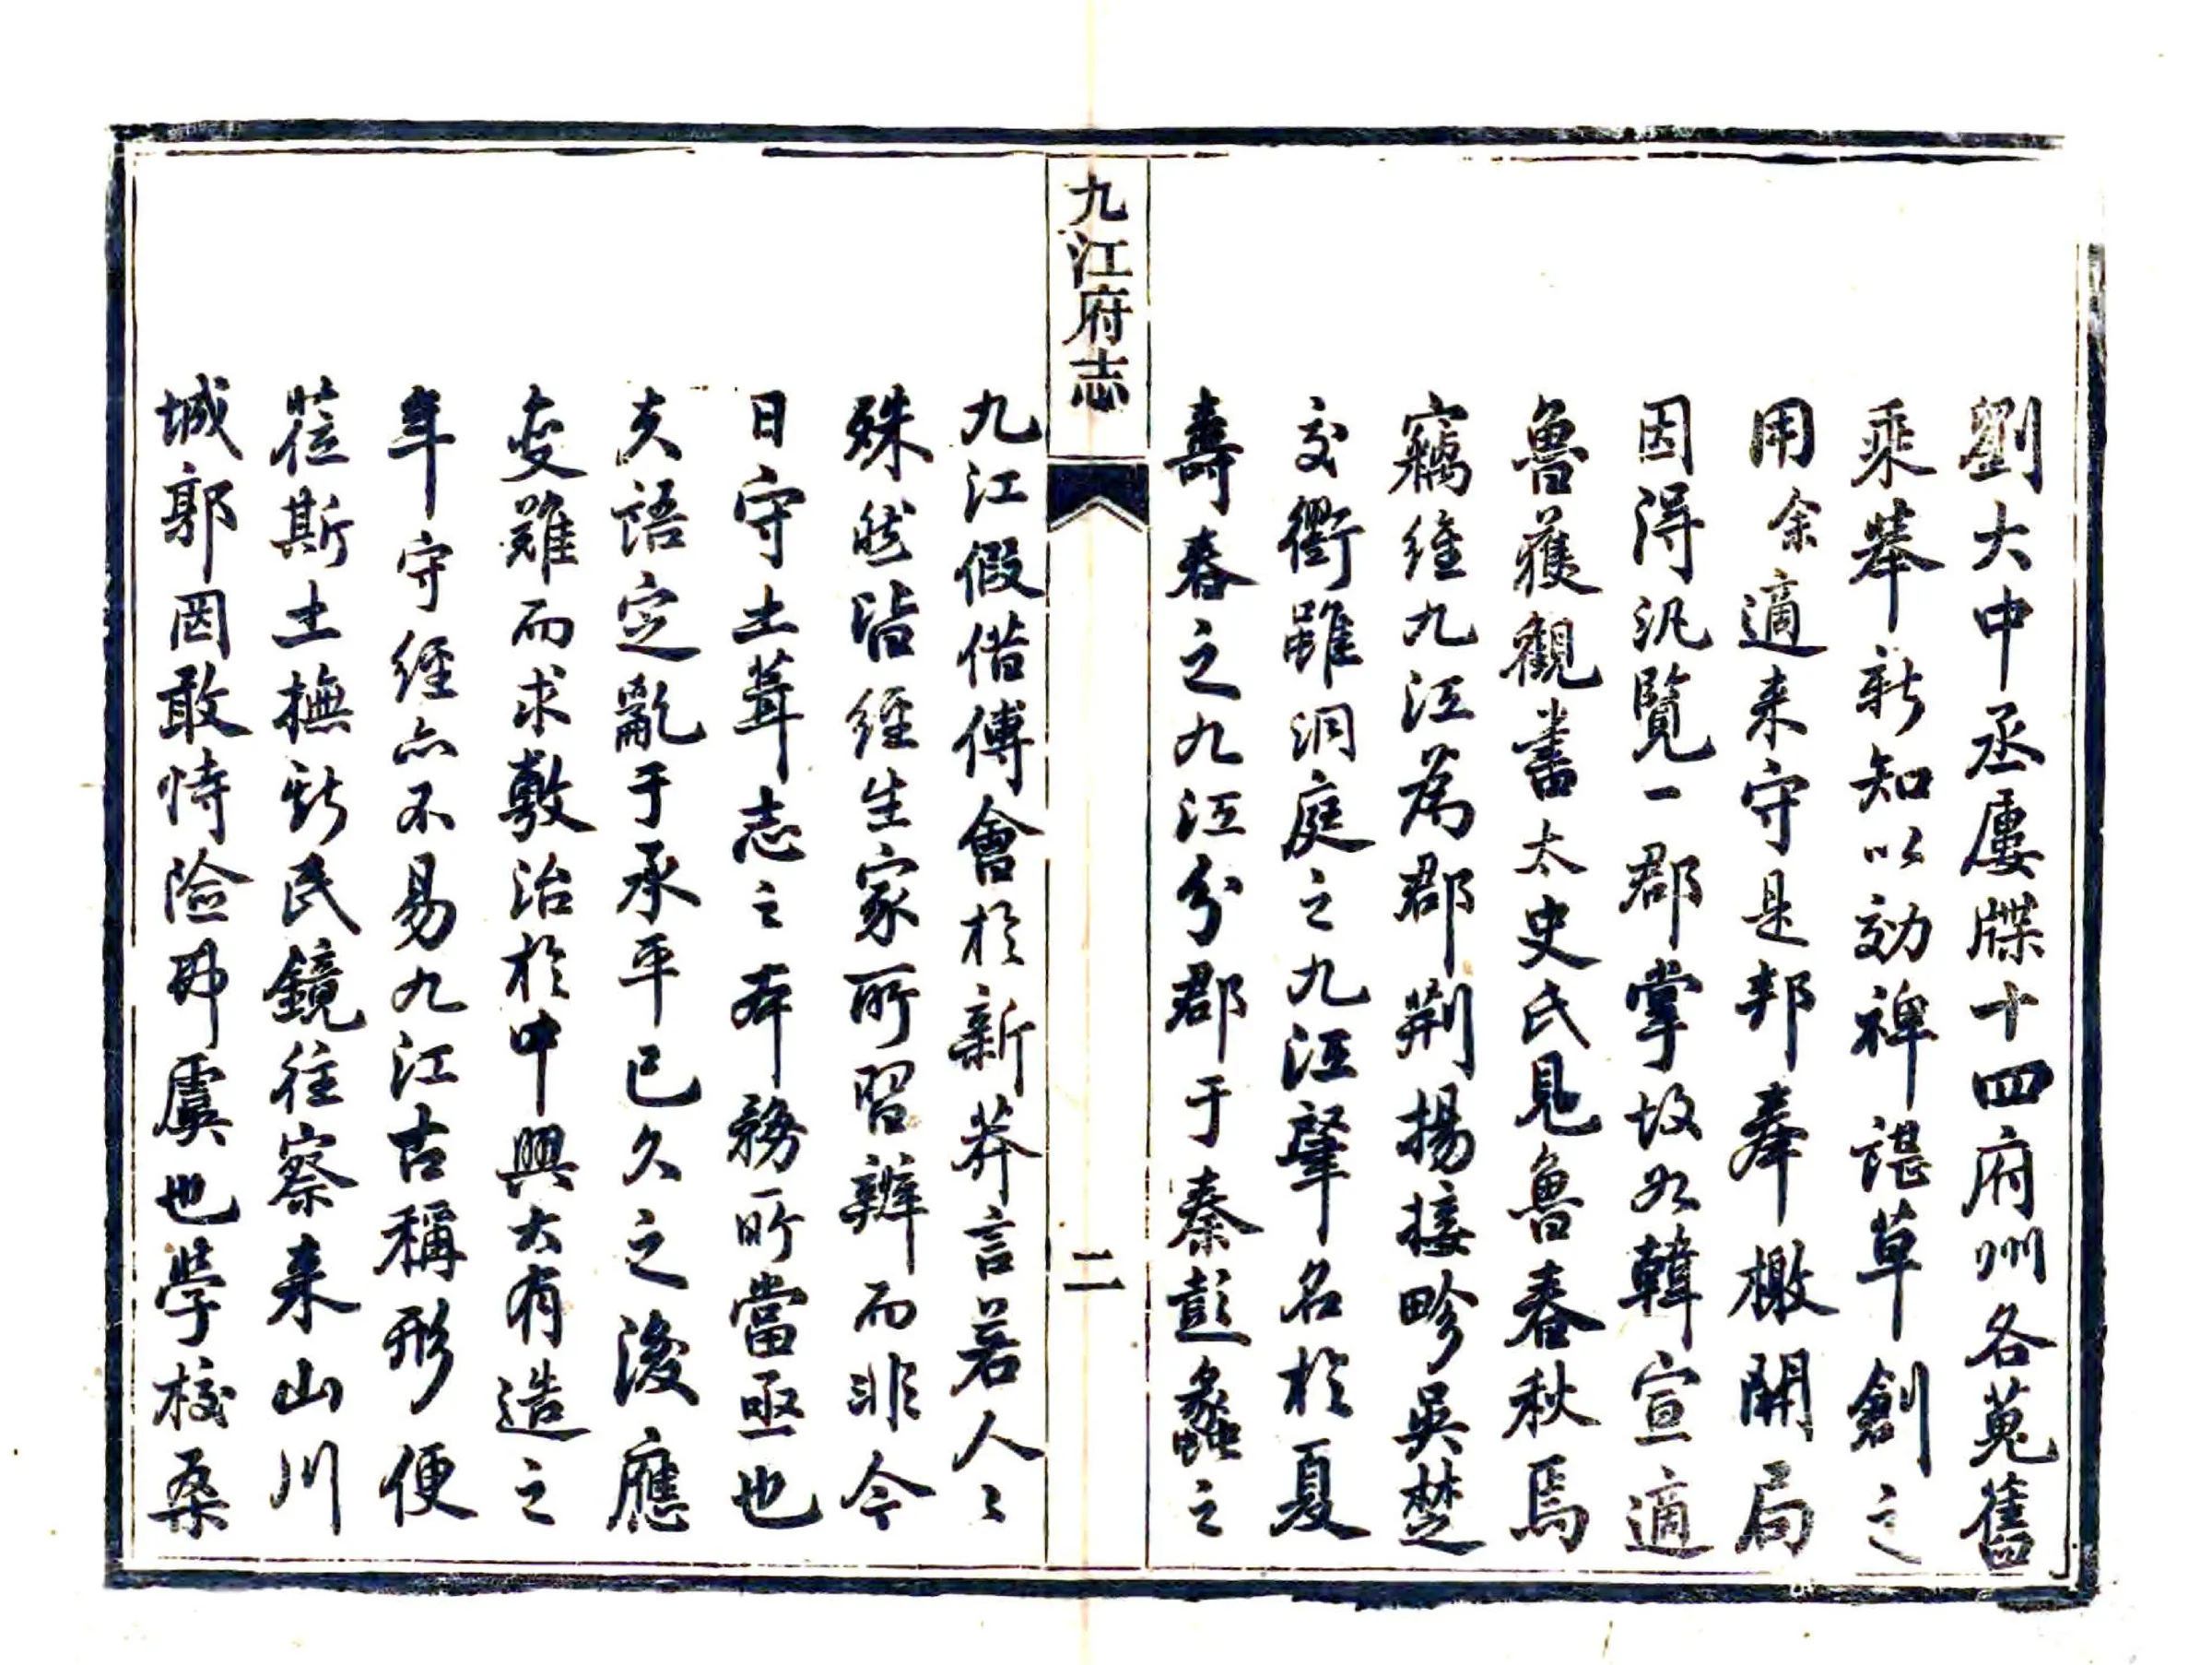 劉大中丞屢牒十四府州各蒐舊
乘舉新知以効裨諶草創之
用余適来守是邦奉檄開局
因得汎覽一郡掌故如韓宣適
魯獲觀書太史氏見魯春秋焉
竊維九江為郡荆揚接畛吳楚
交衢雖洞庭之九江肇名於夏
壽春之九江分郡于秦彭蠡之
九江府志
二
九江假借傅會於新莽言若人〻
殊然皆經生家所習辨而非今
日守土葺志之本務所當亟也
夫語定亂于承平已久之後應
變難而求敷治於中興大有造之
年守經亦不易九江古稱形便
莅斯土撫斯民鏡往察来山川
城郭罔敢恃險弗虞也學校桑